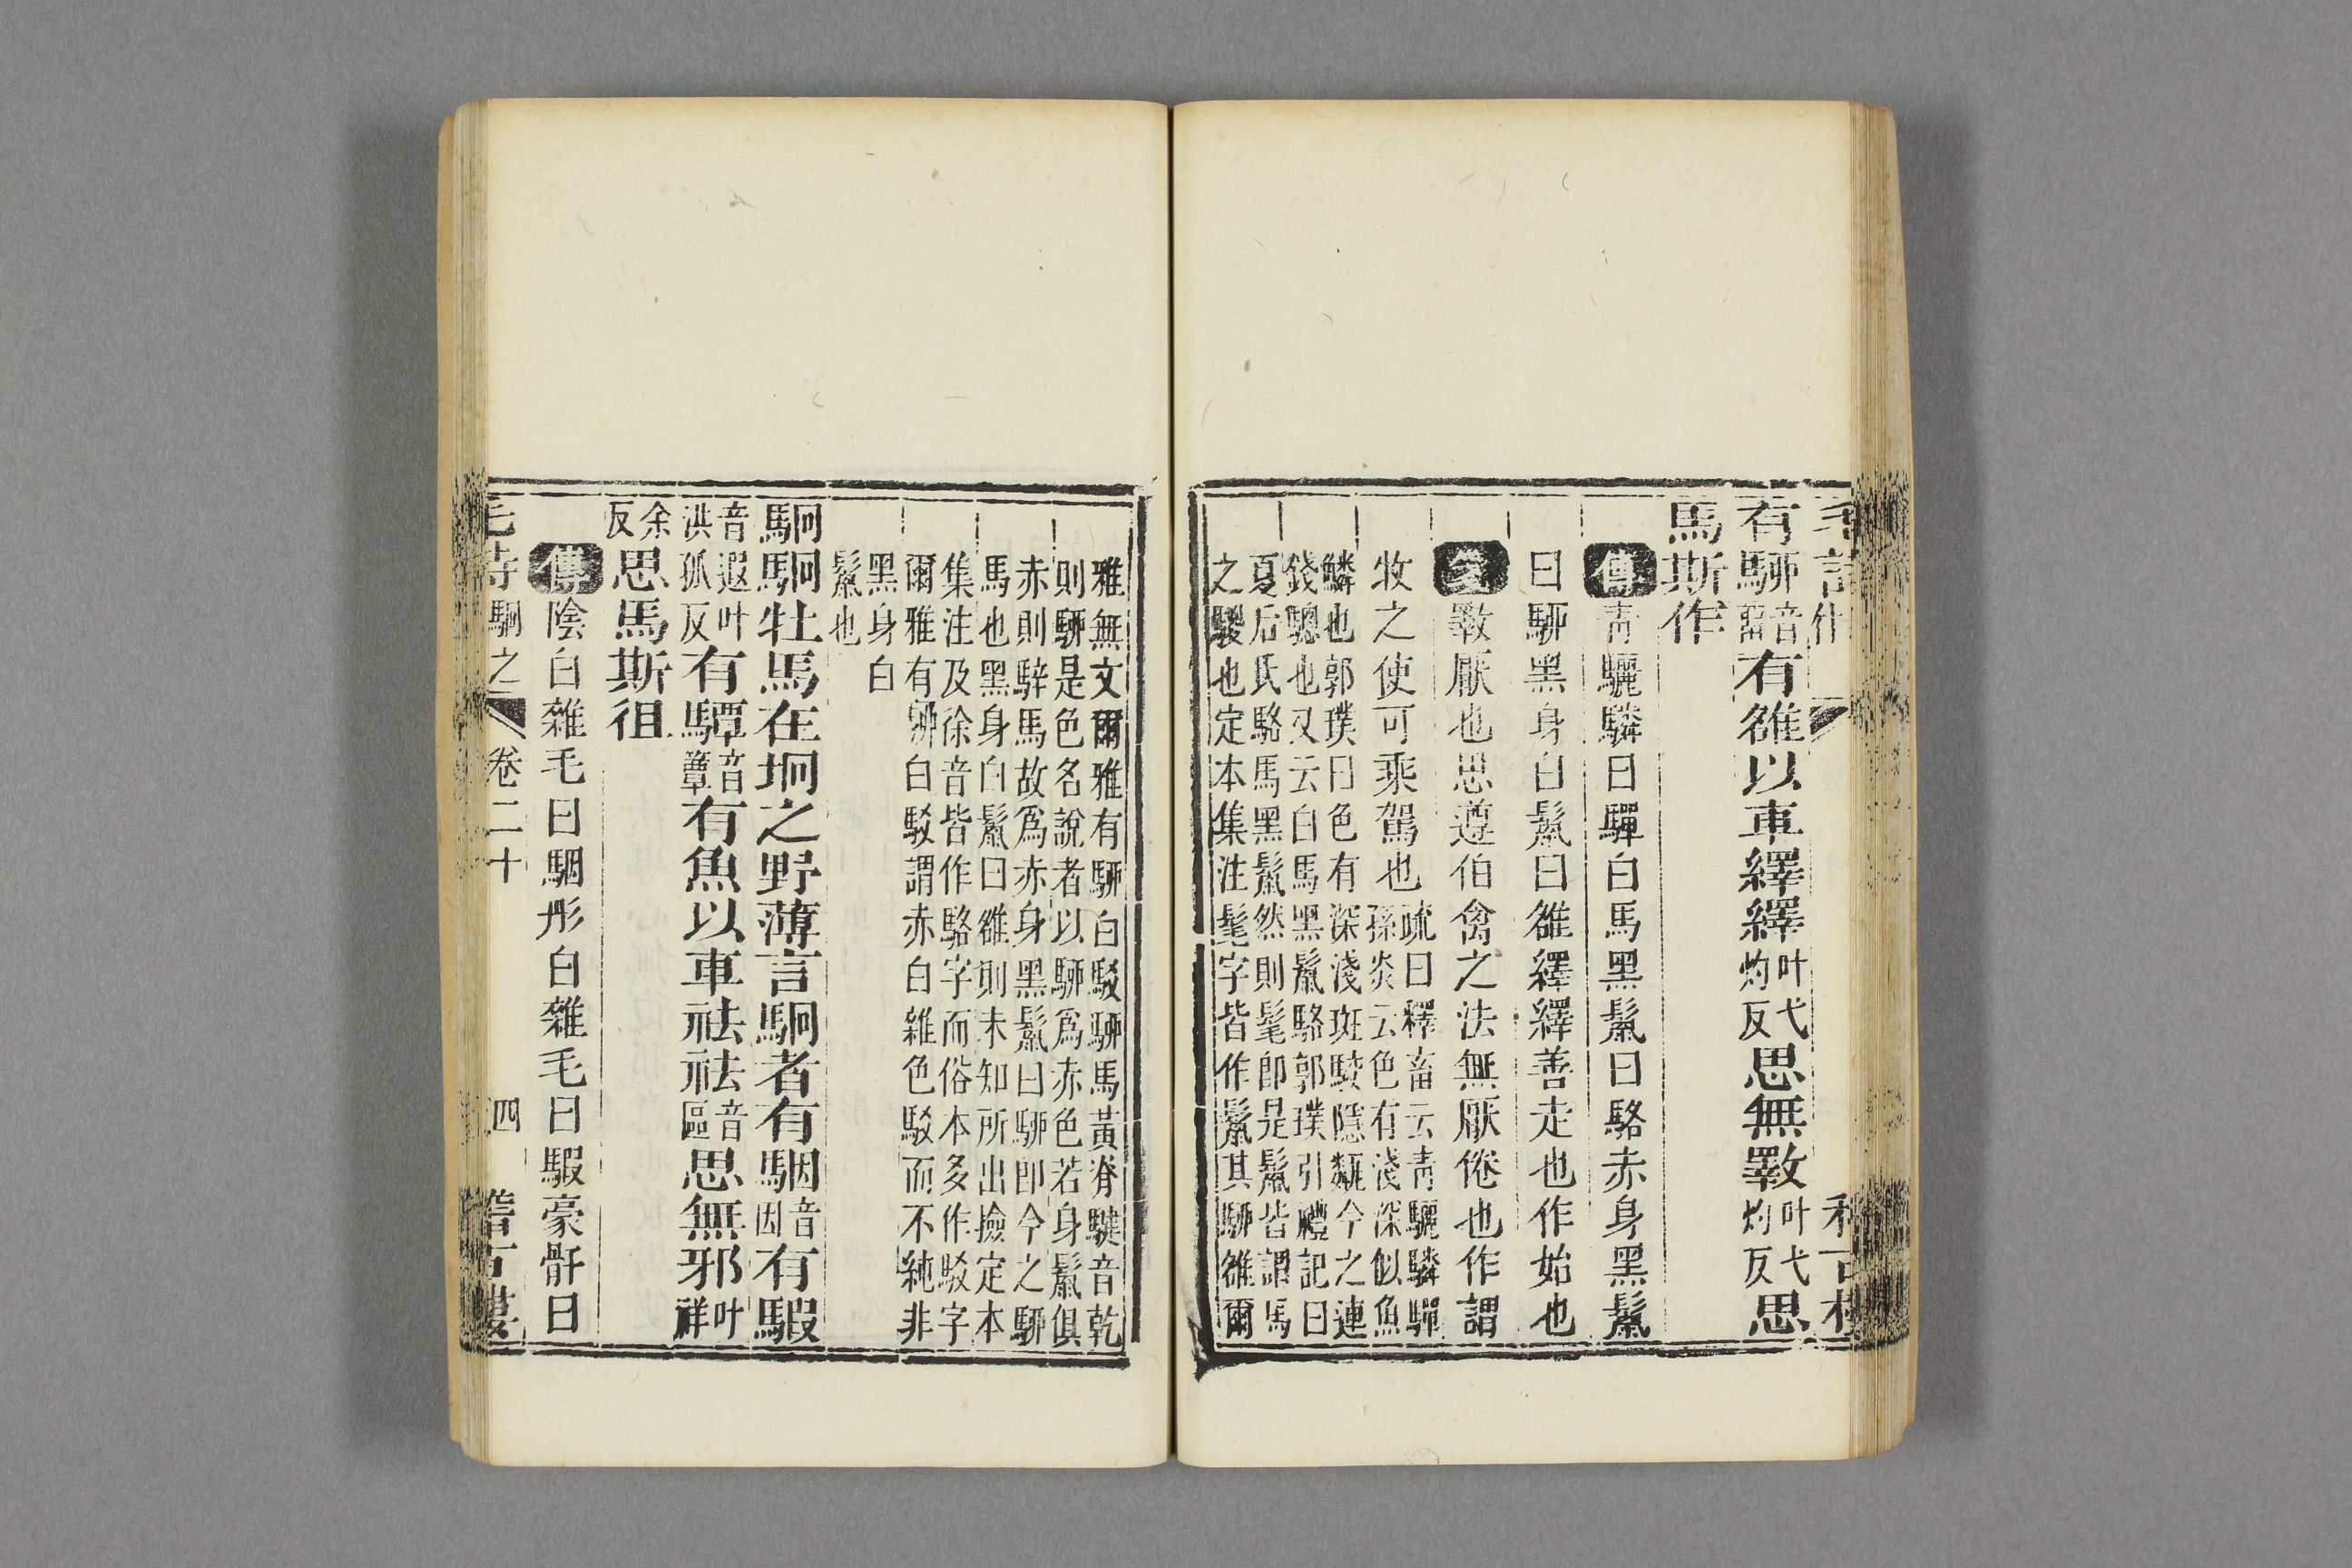 有駵音留有雒以車繹繹叶弋灼反思無斁叶弋灼反思
馬斯作
傳青驪驎曰驒白馬黑鬣曰駱赤身黑鬣
曰駵黑身白鬣曰雒繹繹善走也作始也
箋斁厭也思遵伯禽之法無厭倦也作謂
牧之使可乘駕也疏曰釋畜云青驪驎驒孫炎云色有淺深似魚
鱗也郭璞曰色有深淺斑駮隱粼今之連
錢驄也又云白馬黑鬣駱郭璞引禮記曰
夏后氏駱馬黑鬣然則髦即是鬣皆謂馬
之騣也定本集注髦字皆作鬣其駵雒爾
雅無文爾雅有駵白駁駵馬黃脊騝音乾
則駵是色名說者以駵爲赤色若身鬣俱
赤則騂馬故爲赤身黑鬣曰駵即今之駵
馬也黑身白鬣曰雒則未知所出撿定本
集注及徐音皆作駱字而俗本多作駁字
爾雅有駵白駁謂赤白雜色駁而不純非
黑身白
鬣也
駉駉牡馬在坰之野薄言駉者有駰音因有騢
音遐叶洪孤反有驔音簟有魚以車祛祛音區思無邪叶祥
余反思馬斯徂
傳陰白雜毛曰駰彤白雜毛曰騢豪骭曰
毛詩駉之 卷二十 四